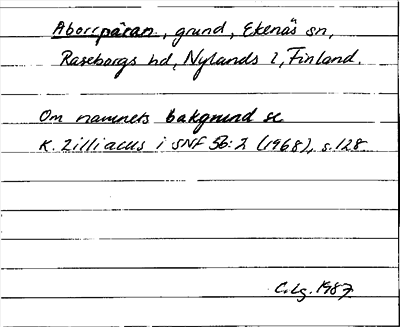 Aborrpäran, grund, Ekenäs sn,
Raseborgs hd, Nylands l, Finland.
Om namnets bakgrund se
K. Zilliacus i SNF 56:2 (1968), s.128
C.Lg. 1987.